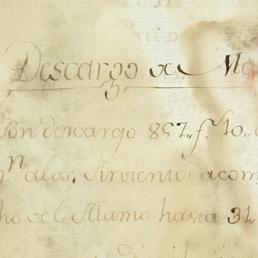 Descargo de Ma
son descargo 857,, f.. 10,,
n alos Sirvientes acom
ho de l Alamo hasta 31,,